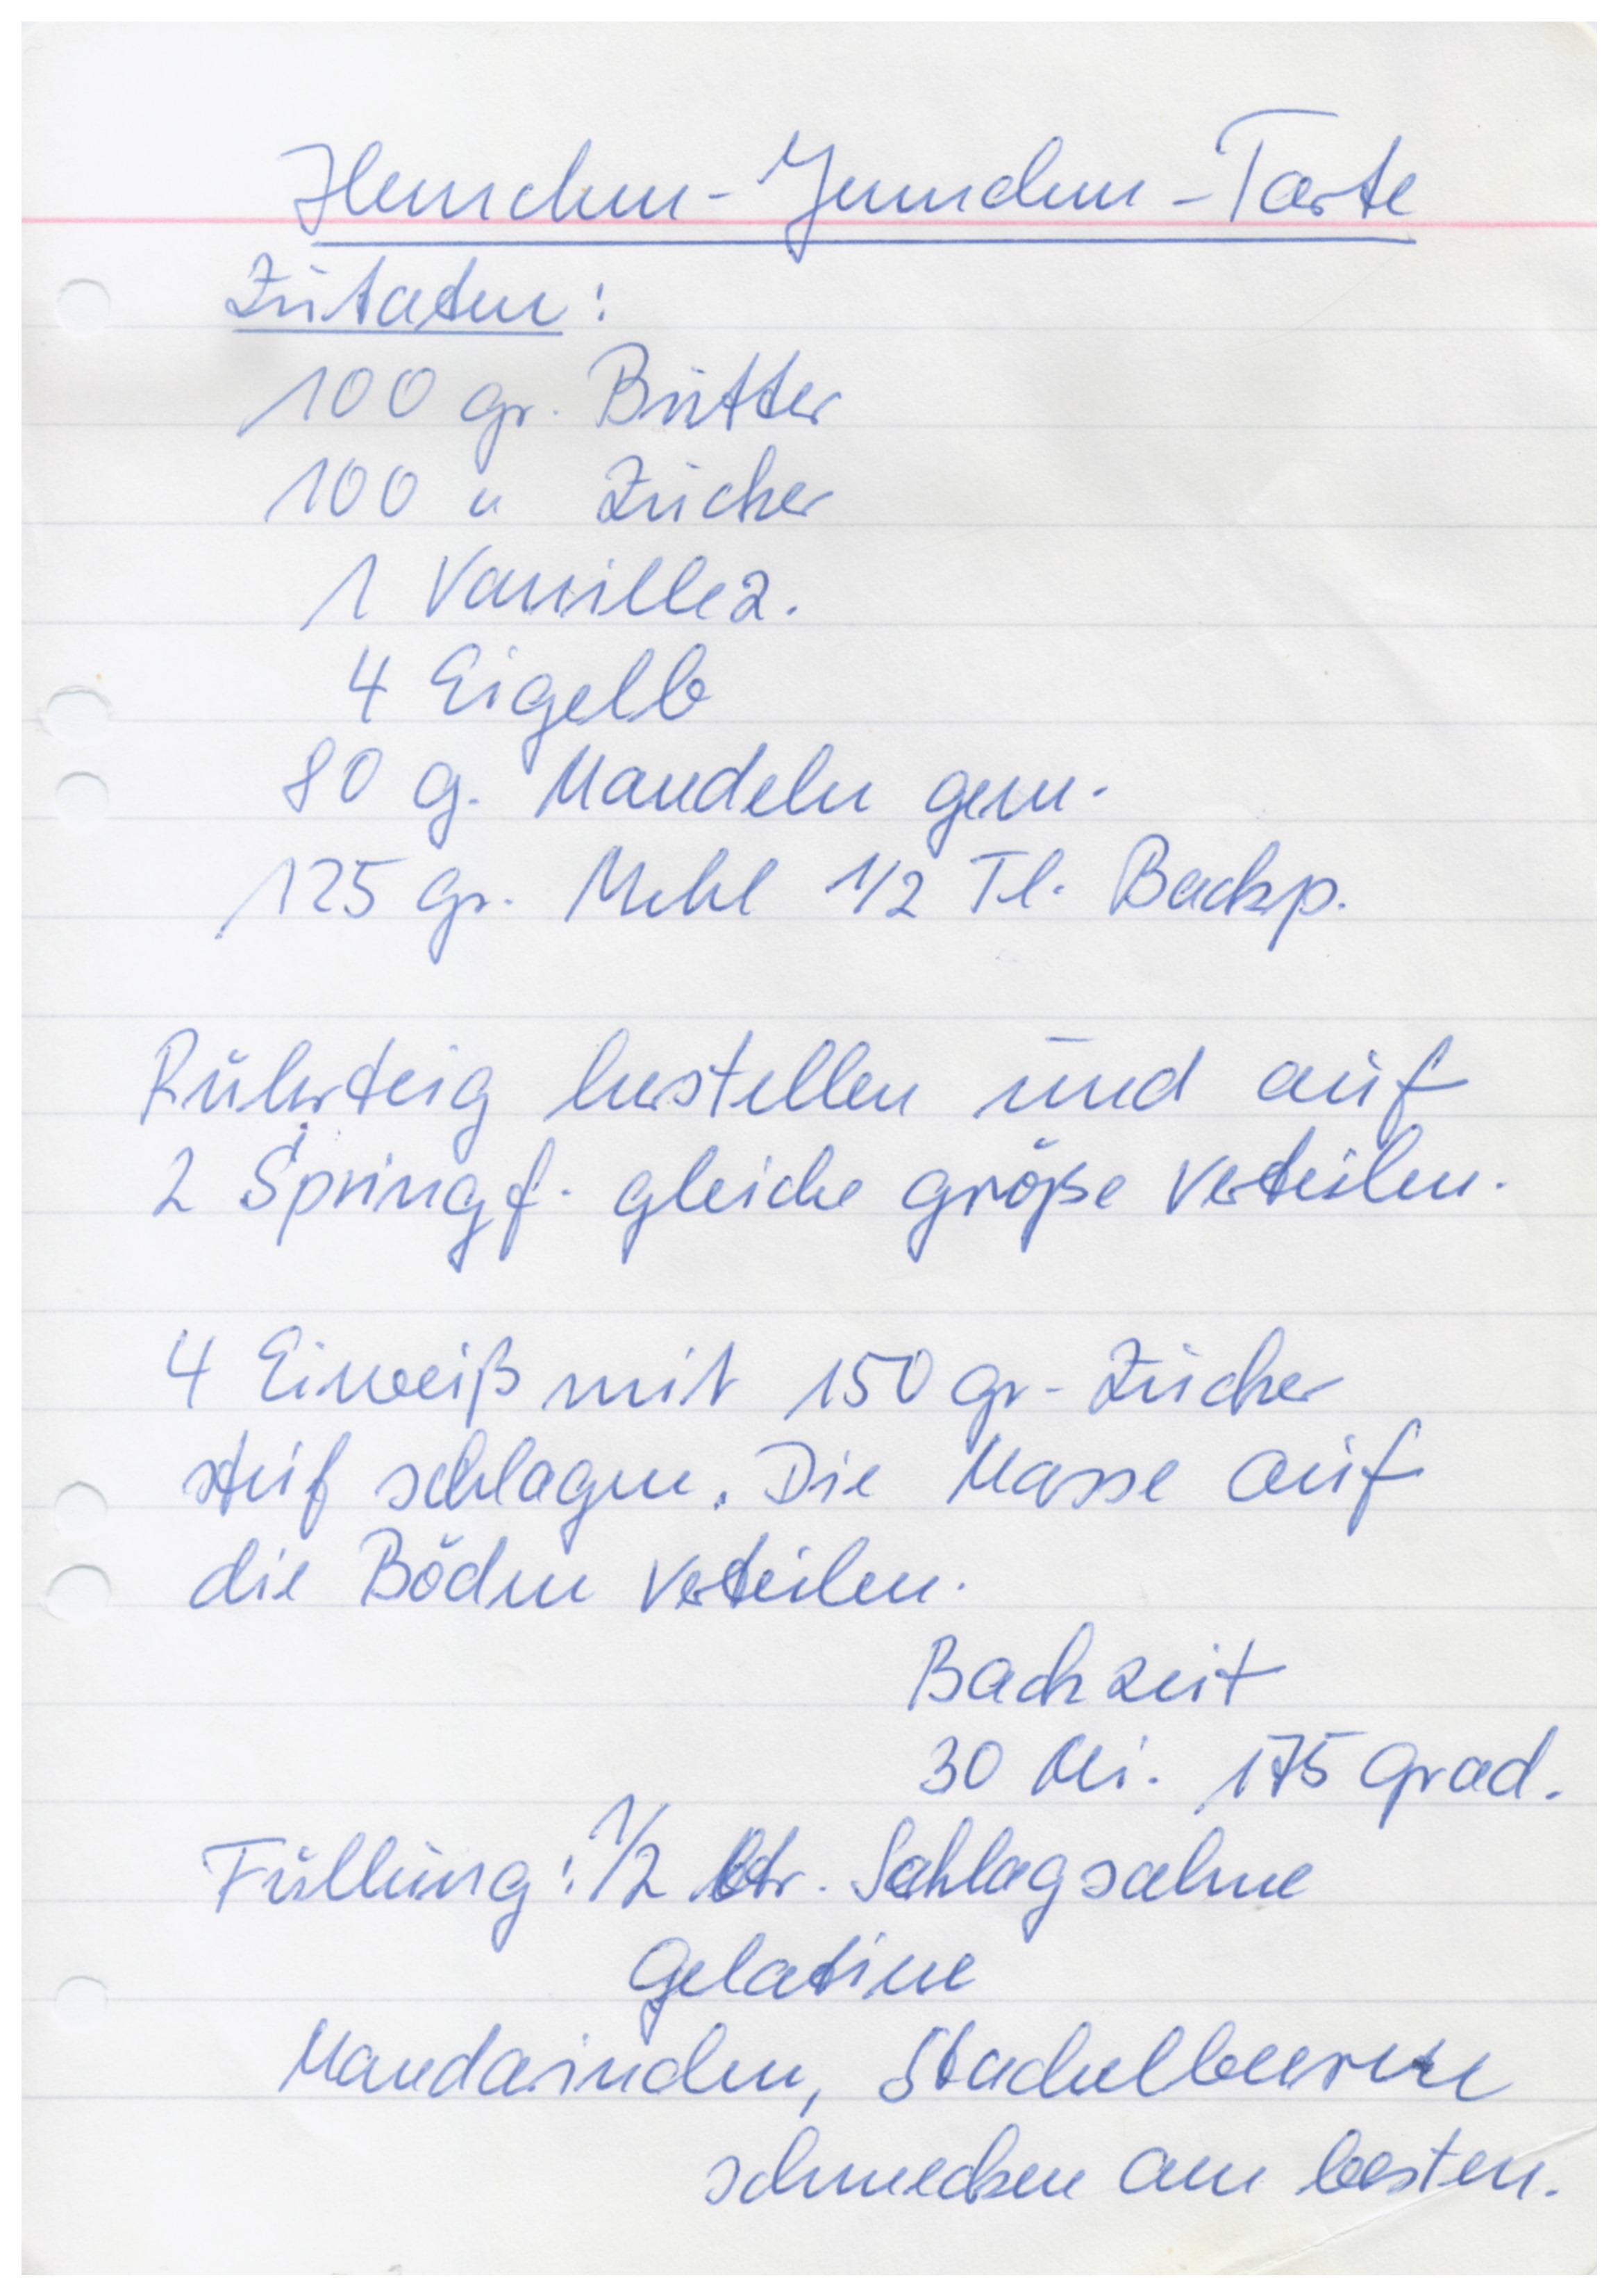 Hemchen-Jemchen-Tarte
Zutaten:
100 gr. Butter
100 " Zucker
1 Vanillez.
4 Eigelb
80 g. Mandeln gem.
125 gr. Mehl 1/2 Tl. Backp.
Rührteig herstellen und auf
2 Springf. gleiche größe verteilen.
4 Eiweiß mit 150 gr. Zucker
steif schlagen. Die Masse auf
die Böden verteilen.
Backzeit
30 Mi. 175 Grad.
Füllung: 1/2 Ltr. Schlagsahne
Gelatine
Mandarinchen, Stachelbeeren
schmecken am besten.